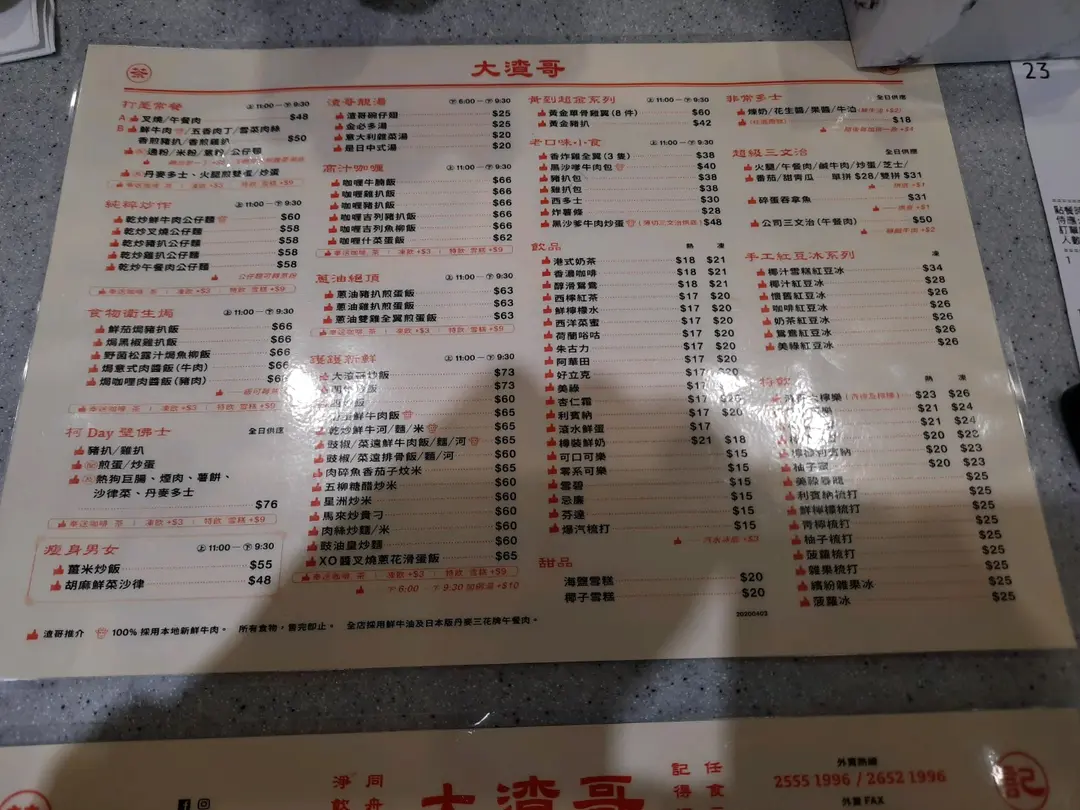 茶
大渣哥
打尾常餐 上11:00－下9:30
A 叉燒/午餐肉 $48
B 鮮牛肉/五香肉丁/雪菜肉絲
香煎豬扒/香煎雞扒 $50
通粉/米粉/意粉/公仔麵
丹麥多士、火腿煎雙蛋/炒蛋
奉送咖啡 茶 | 凍飲+$3 | 特飲 雪糕+$9
純粹炒作 上11:00－下9:30
乾炒鮮牛肉公仔麵 $60
乾炒叉燒公仔麵 $58
乾炒豬扒公仔麵 $58
乾炒雞扒公仔麵 $58
乾炒午餐肉公仔麵 $58
奉送咖啡 茶 | 凍飲+$3 | 特飲 雪糕+$9
食物衛生焗 上11:00－下9:30
鮮茄焗豬扒飯 $66
焗黑椒雞扒飯 $66
野菌松露汁焗魚柳飯 $66
焗意式肉醬飯(牛肉) $66
焗咖哩肉醬飯(豬肉)
奉送咖啡 茶 | 凍飲+$3 | 特飲 雪糕+$9
柯Day壁佛士 全日供應
豬扒/雞扒
煎蛋/炒蛋
熱狗巨腸、煙肉、薯餅、
沙律菜、丹麥多士
$76
奉送咖啡 茶 | 凍飲+$3 | 特飲 雪糕+$9
瘦身男女 上11:00－下9:30
薑米炒飯 $55
胡麻鮮菜沙律 $48
渣哥推介 100%採用本地新鮮牛肉。 所有食物，售完即止。 全店採用鮮牛油及日本版丹麥三花牌午餐肉。
渣哥靚湯 下6:00－下9:30
渣哥碗仔翅 $25
金必多湯 $25
意大利雜菜湯 $20
是日中式湯 $20
高汁咖喱 上11:00－下9:30
咖喱牛腩飯 $66
咖喱雞扒飯 $66
咖喱豬扒飯 $66
咖喱吉列豬扒飯 $66
咖喱吉列魚柳飯 $66
咖喱什菜蛋飯 $62
奉送咖啡 茶 | 凍飲+$3 | 特飲 雪糕+$9
蔥油絕頂 上11:00－下9:30
蔥油豬扒煎蛋飯 $63
蔥油雞扒煎蛋飯 $63
蔥油雙雞全翼煎蛋飯 $63
奉送咖啡 茶 | 凍飲+$3 | 特飲 雪糕+$9
鑊鑊新鮮 上11:00－下9:30
大渣哥炒飯 $73
$73
$60
鮮牛肉飯 $65
乾炒鮮牛河/麵/米 $65
豉椒/菜遠鮮牛肉飯/麵/河 $65
豉椒/菜遠排骨飯/麵/河 $60
肉碎魚香茄子炆米 $65
五柳糖醋炒米 $60
星洲炒米 $60
馬來炒貴刁 $60
肉絲炒麵/米 $60
豉油皇炒麵 $60
XO醬叉燒蔥花滑蛋飯 $65
奉送咖啡 茶 | 凍飲+$3 | 特飲 雪糕+$9
下6:00－下9:30
黃到超金系列 上11:00－下9:30
黃金單骨雞翼(8件) $60
黃金豬扒 $42
老口味小食 上11:00－下9:30
香炸雞全翼(3隻) $38
黑沙嗲牛肉包 $40
豬扒包 $38
雞扒包 $38
西多士 $30
炸薯條 $28
黑沙爹牛肉炒蛋(薄切三文治供品) $48
飲品 熱 凍
港式奶茶 $18 $21
香濃咖啡 $18 $21
醇滑鴛鴦 $18 $21
西檸紅茶 $17 $20
鮮檸檬水 $17 $20
西洋菜蜜 $17 $20
荷蘭唂咕 $17 $20
朱古力 $17 $20
阿華田 $17 $20
好立克 $17 $20
美祿 $17 $20
杏仁霜 $17
利賓納 $17 $20
滾水鮮蛋 $17
樽裝鮮奶 $21 $18
可口可樂 $15
零系可樂 $15
雪碧 $15
忌廉 $15
芬達 $15
爆汽梳打 $15
甜品
海鹽雪糕 $20
椰子雪糕 $20
非常多士 全日供應
煉奶/花生醬/果醬/牛油
$18
超級三文治 全日供應
火腿/午餐肉/鹹牛肉/炒蛋/芝士/
番茄/甜青瓜 單拼$28/雙拼$31
烘底+$1
碎蛋吞拿魚 $31
烘底+$1
公司三文治(午餐肉) $50
手工紅豆冰系列 凍
椰汁雪糕紅豆冰 $34
椰汁紅豆冰 $28
懷舊紅豆冰 $26
咖啡紅豆冰 $26
奶茶紅豆冰 $26
鴛鴦紅豆冰 $26
美綠紅豆冰 $26
特飲 熱 凍
$23 $26
$21 $24
$21 $24
$20 $22
柚子蜜 $20 $23
$25
利賓納梳打 $25
鮮檸檬梳打 $25
青檸梳打 $25
柚子梳打 $25
菠蘿梳打 $25
雜果梳打 $25
繽紛雜果冰 $25
菠蘿冰 $25
20200403
23
大渣哥
外賣熱線
2555 1996 / 2652 1996
外賣 FAX
記